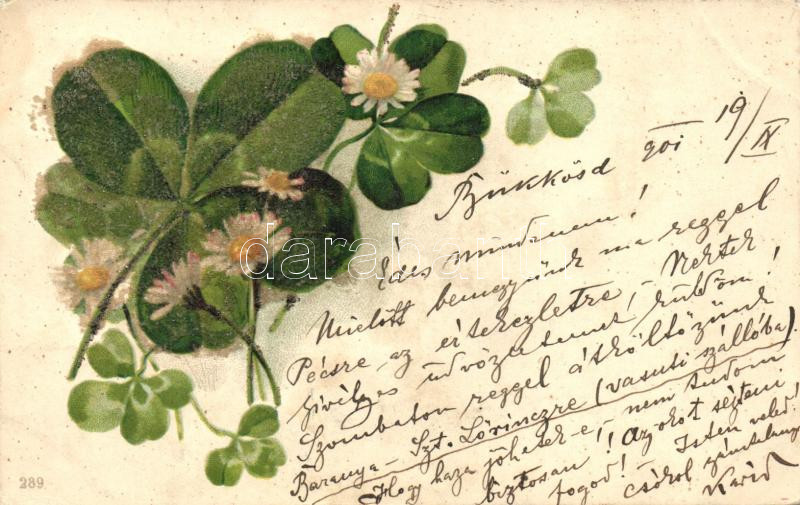 Bükkösd 901 19/IX
Édes mindenem!
Mielőtt bemegyünk ma reggel
Pécsre az értekezletre, – Nektek
szívélyes üdvözletemet küldöm!
Szombaton reggel átköltözünk
Baranya – Szt. Lőrinczre (vasuti szállóba).
Hogy haza jöhetek-e, nem tudom
biztosan! Az okot sejteni
fogod! – Isten veled!
csókol számtalanszor
289
darabanth